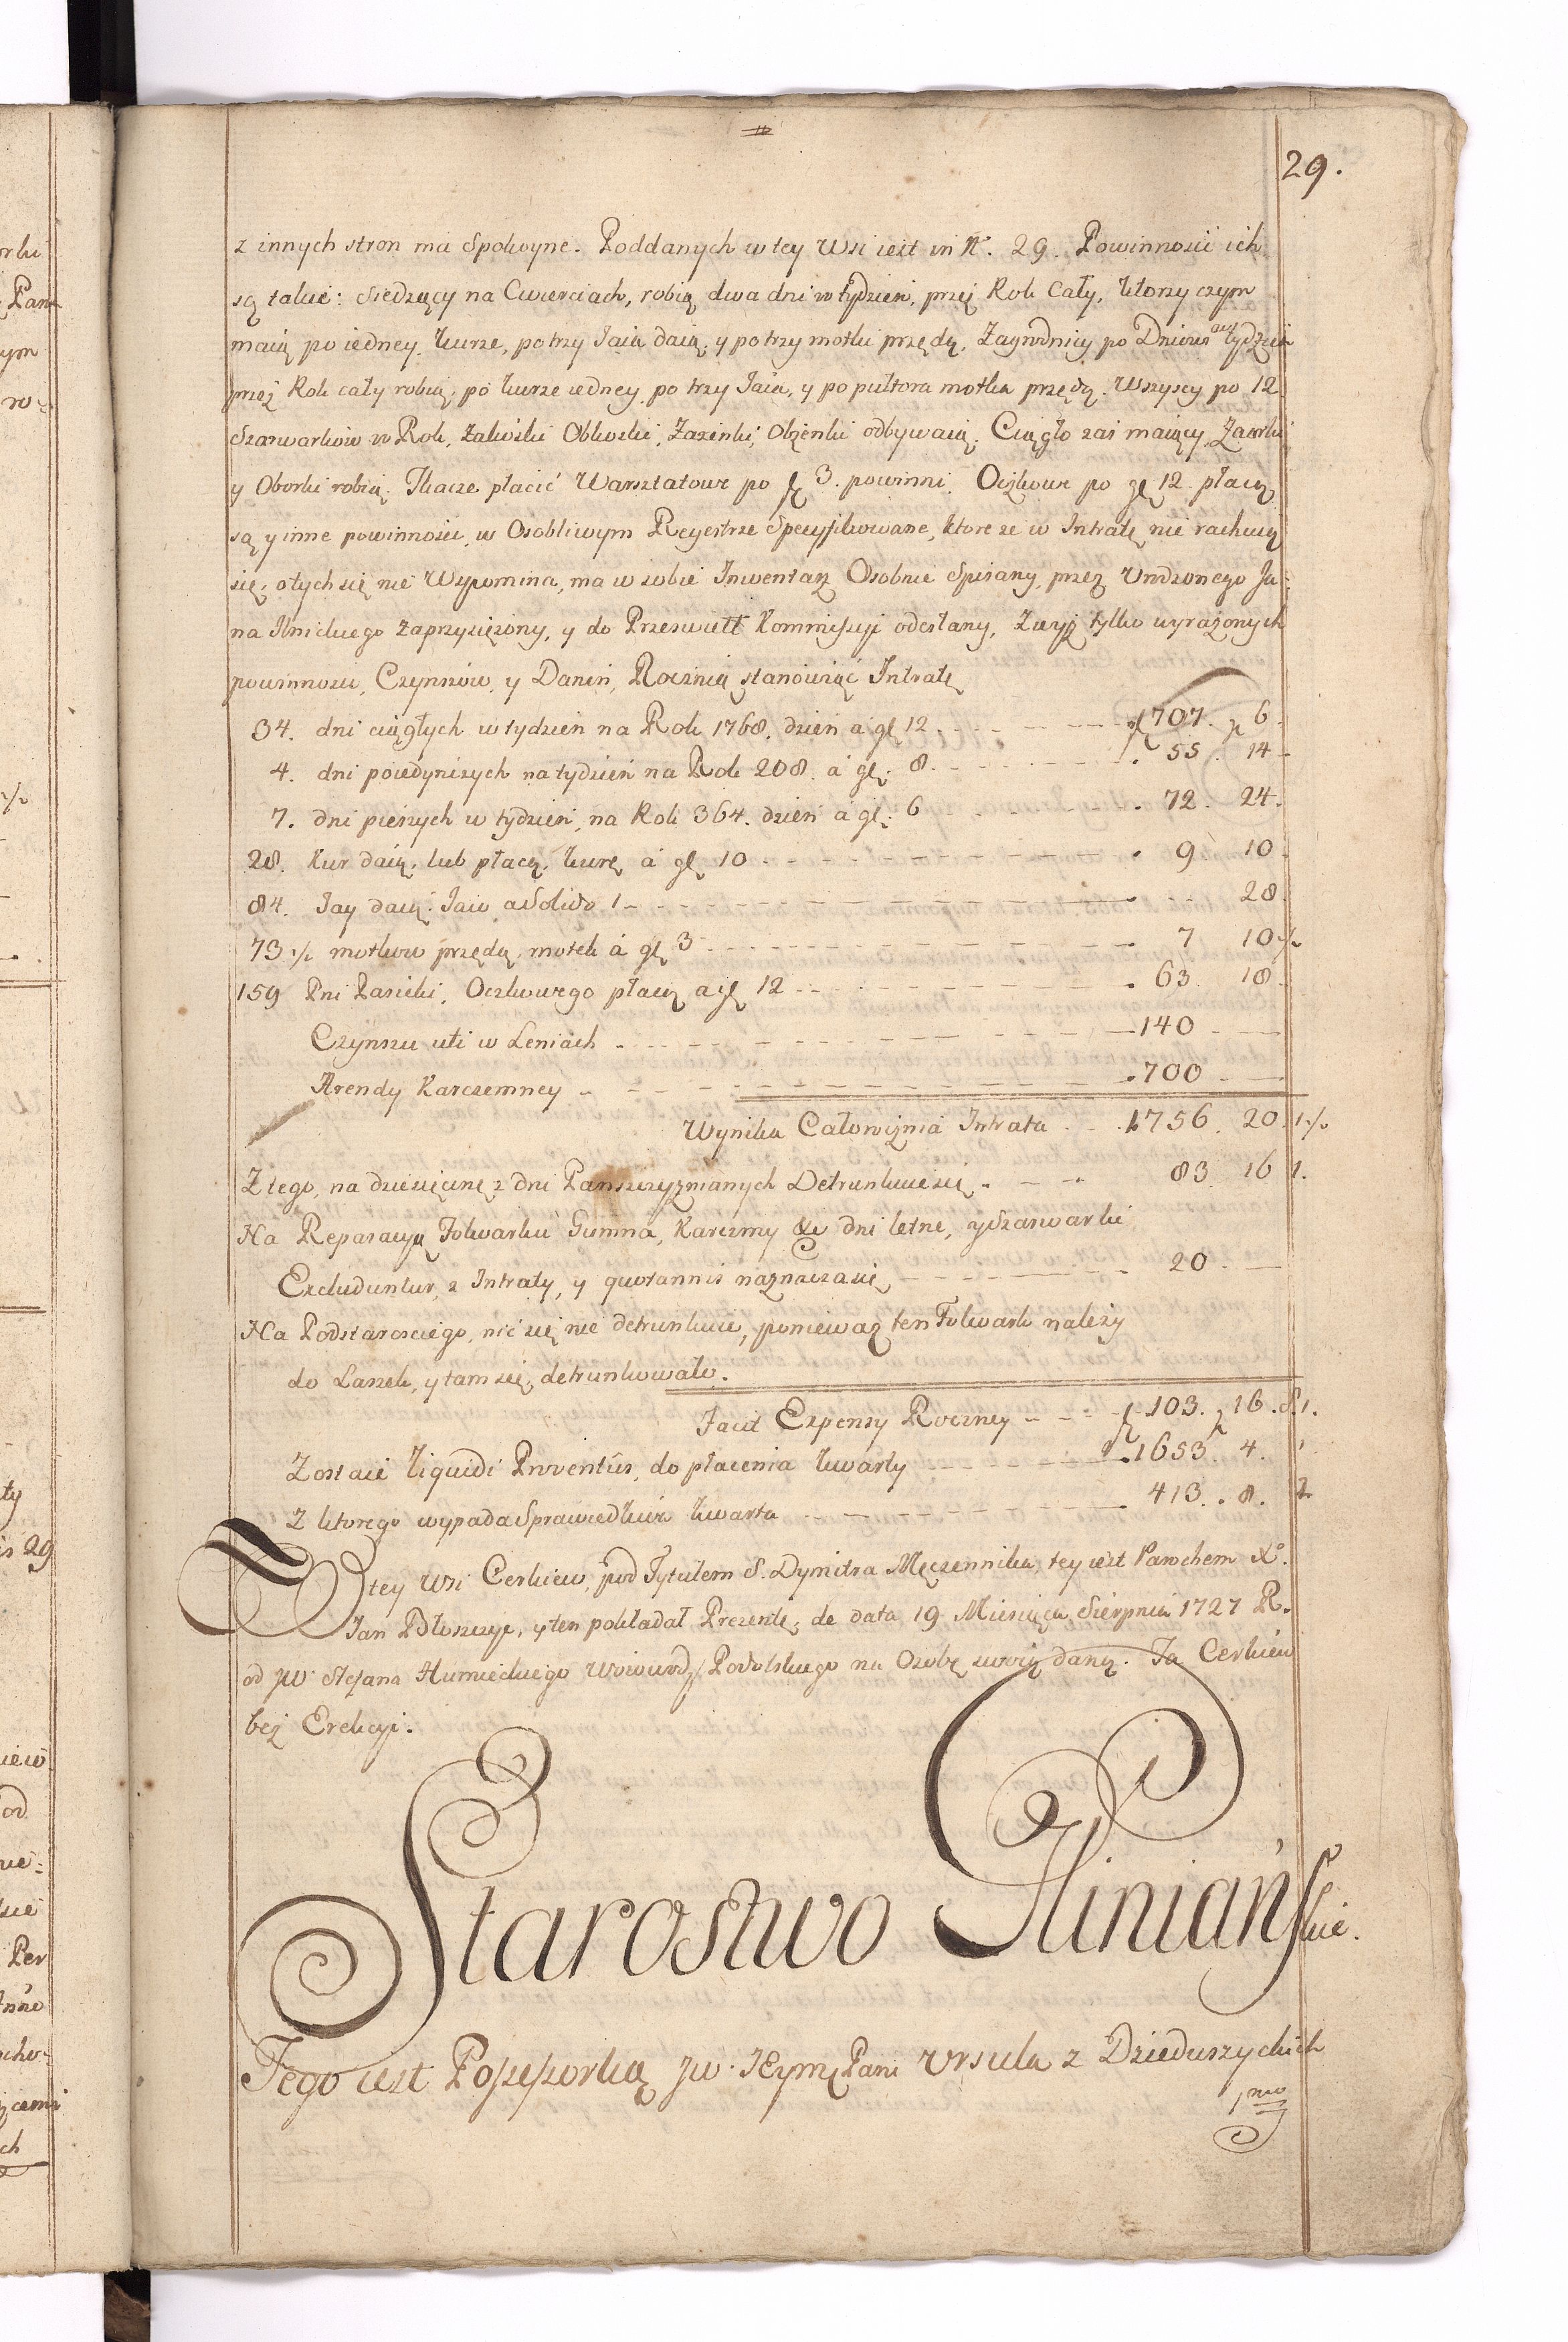 29.
z innych stron ma Spokoyne. Poddanych w tey Wsi iest in N°. 29. Powinności ich
są takie: Siedzący na Cwierciach, robią dwa dni w tydzien, przez Rok Cały,
maią po iedney kurze, po trzy Iaia daią, y po trzy motki przędą, Zagrodnicy po Dniowi na tydzien
przez Rok cały robią, po kurze iedney po trzy Iaia, y po pułtora motka przędą. Wszyscy po 12
Szarwarkow w Rok, Zakoski Obkoski, Zażenki, Obżenki odbywaią. Ciągło zaś maiący, Zaorki
y Oborki robią. Tkacze płacić Warsztatowe po zł 3. powinni. Oczkowe po gr 12 płacą,
są y inne powinności, w Osobliwym Reyestrze Specyfikowane, ktore ze w Intratę nie rachuią
się, o tych się nie Wypomina, ma w sobie Inwentarz Osobnie Spisany, przez Urodzonego Ja-
na Ilnickiego zaprzysiężony, y do Przeswiett Kommissyi odesłany, Zwyż tylko wyrażonych
powinności, Czynszow, y Danin, Roczną stanowiąc Intratę
34. dni ciągłych w tydzień na Rok 1768. dzień a gr 12 - - - zł 707. gr 6.
4. dni poiedynszych na tydzień na Rok 208. á gr. 8. - - - 55. 14
7. dni pieszych w tydzień, na Rok 364. dzień á gr. 6 - - - 72. 24.
28. Kur daią, lub płacą, kurę á gr 10 - - - 9 10
84. Jay daią: Iaie a Solido 1 - - - 28
73 ½ motkow przędą, motek á gr 3 - - - 7 10 ½
159 Pni Pasieki, Oczkowego płacą a gr 12 - - - 63. 18
Czynszu uti w Leniach - - - 140 - -
Arendy Karczemney - - - 700 - -
Wynika Całoroczna Intrata - - 1756. 20. 1 ½
Z tego, na dziesięcinę z dni Panszczyznianych Detrunkuie się - - - 83. 16 1.
Na Reparacyą Folwarku Gumna, Karczmy &c dni letne, y Szarwarki
Excluduntur, z Intraty, y quotannis naznacza się - - - 20. -
Na Podstarosciego, nic się nie detrunkuie, poniewaz ten Folwark należy
do Laszek, y tam się, detrunkowało.
Facit Expensy Roczney - - - zł 103. gr 16. S. 1.
Zostaie liquidi Proventûs, do płacenia kwarty - - - 1653. 4. 1
Z ktorego wypada Sprawiedliwa kwarta - - - 413. 8. 2
W tey Wsi Cerkiew, pod Tytułem S. Dymitra Męczennika, tey iest Parochem X°.
Jan, y ten pokładał Prezentę, de data 19 Miesiąca Sierpnia 1727 R.
od JW Stefana Humieckiego Woiewody Podolskiego na Osobę swoią daną. Ta Cerkiew
bez Erekcyi.
Starostwo Gliniańskie.
Tego iest Possessorką JW. JEymć Pani Ursula z Dzieduszyckich
1mo